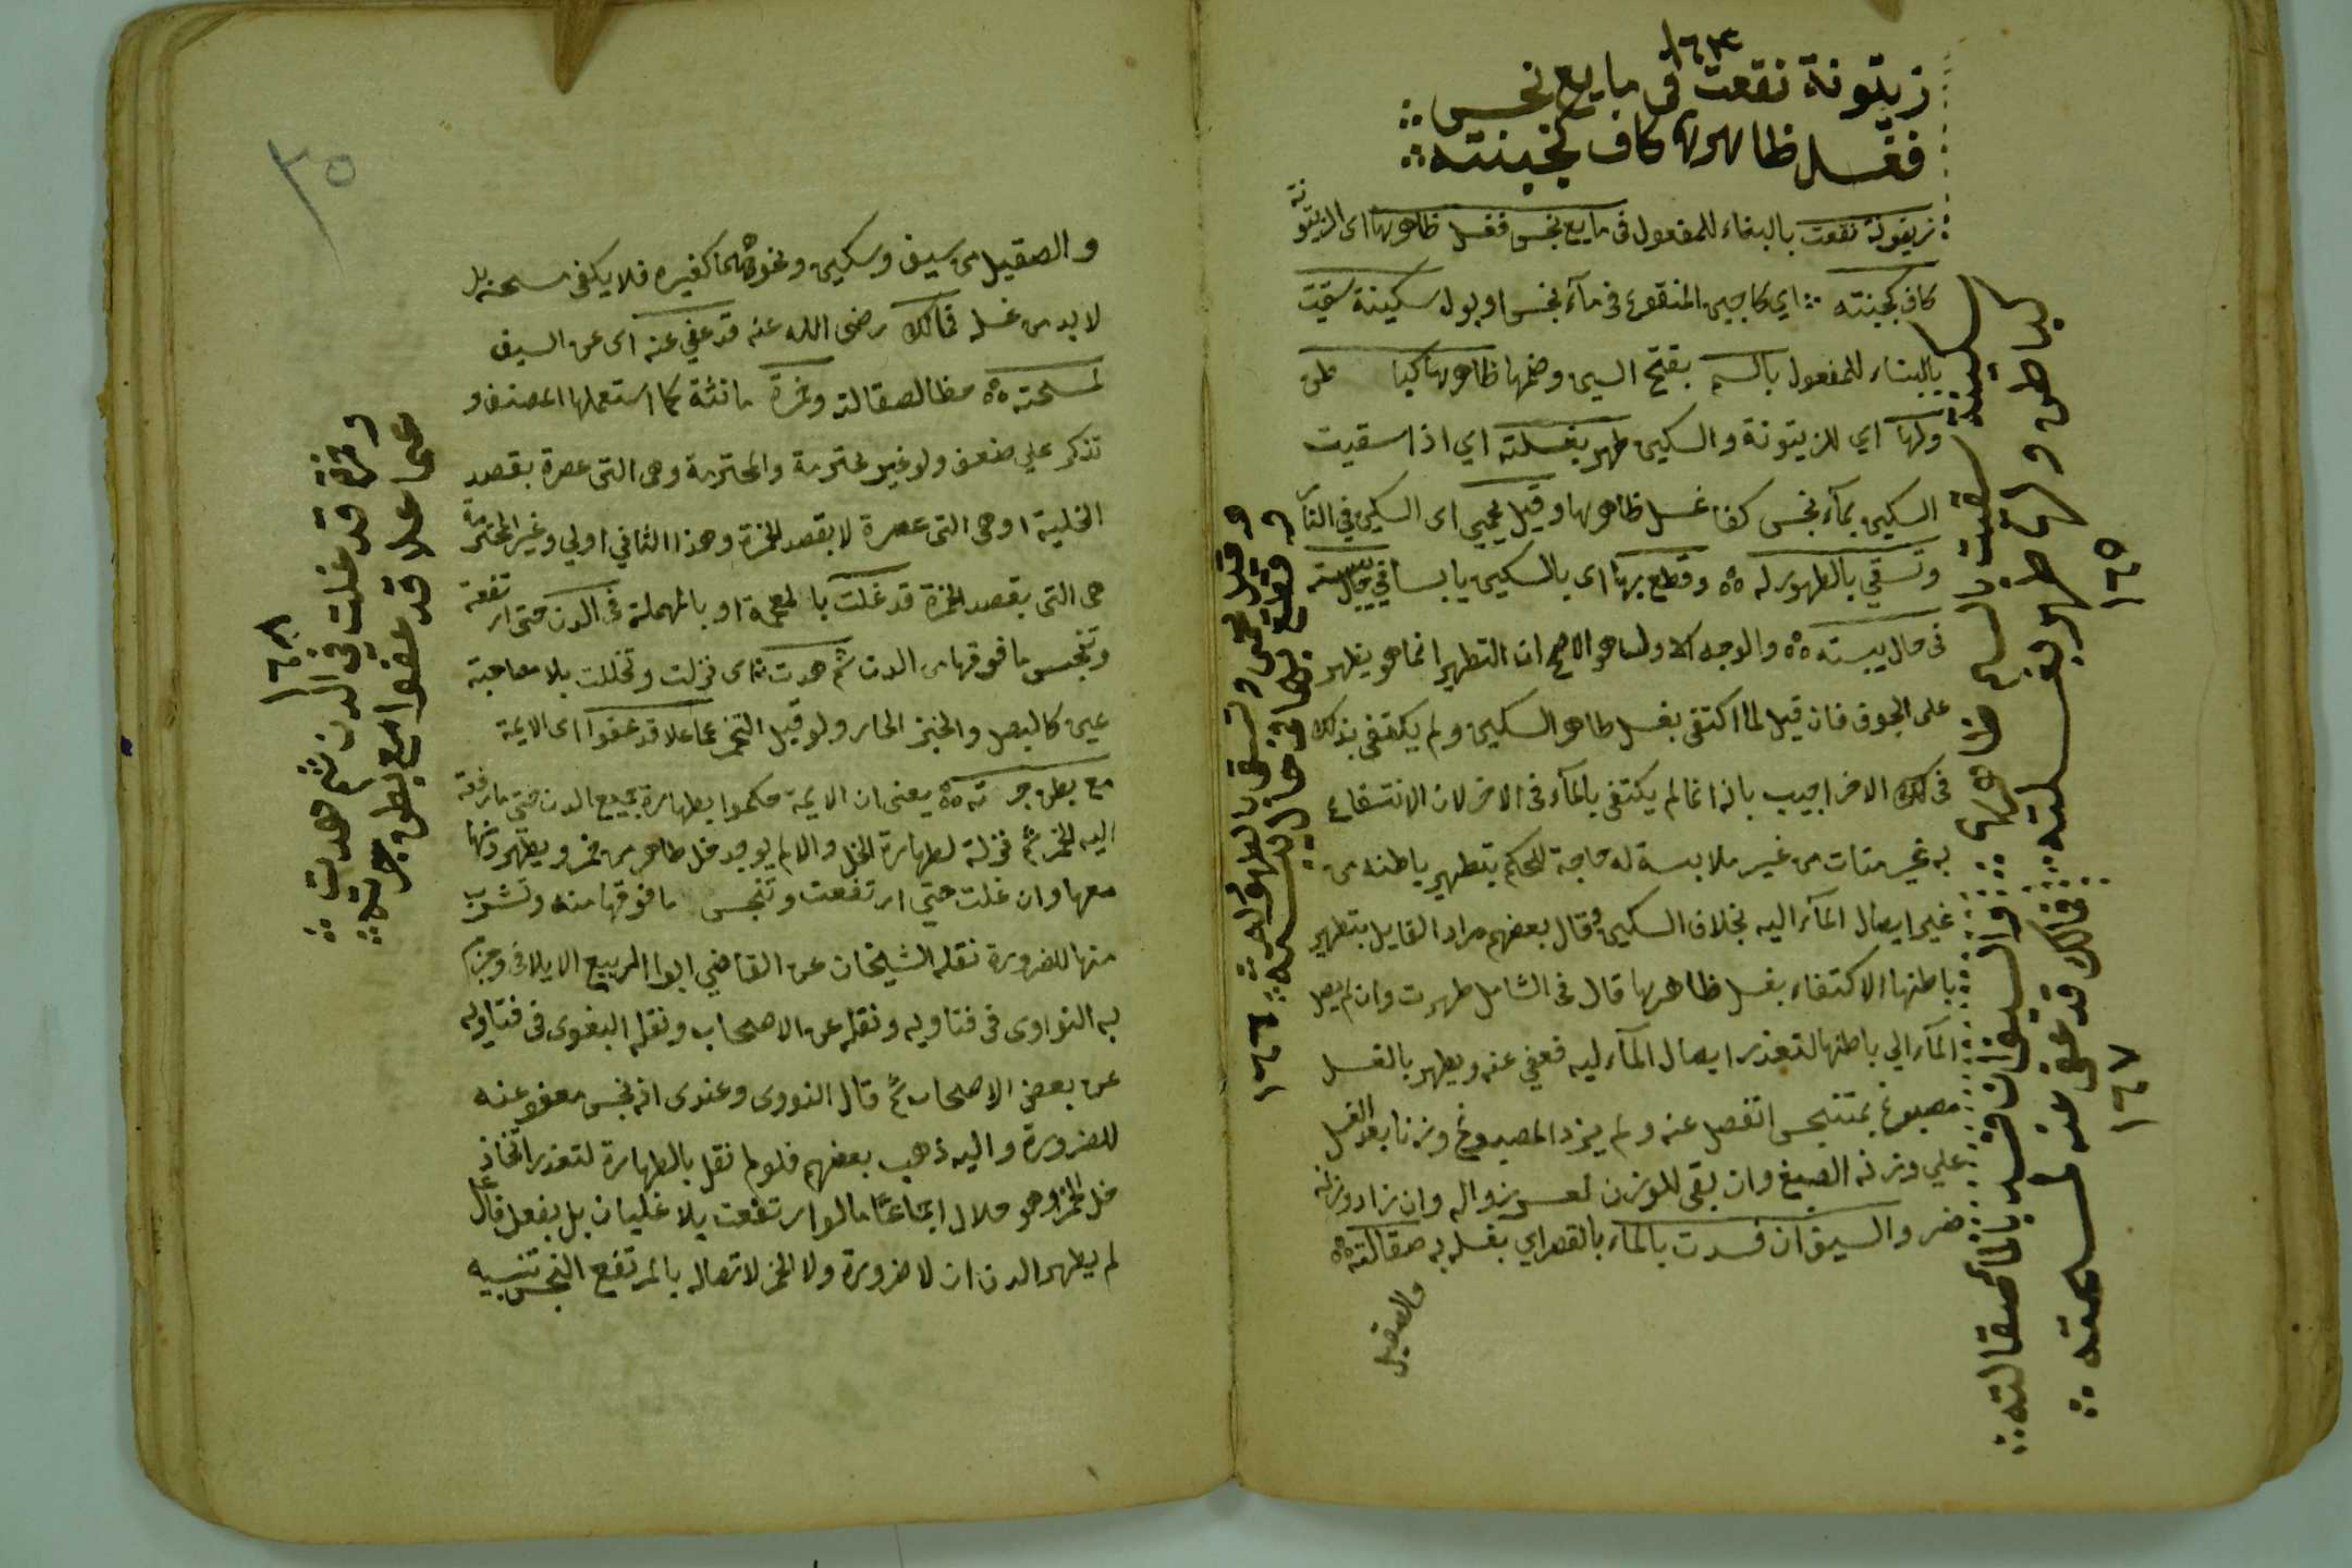 ١٦٤
زيتونة نقعت في مايع نجس
فغسل ظاهرها كاف كجبنته
زيتونة نقعت بالبناء للمفعول في مايع نجس فغسل ظاهرها اى الزيتونة
كاف كجبنته اي كاجبن المنقوع في مآء نجس او بول سكينة سقيت
بالبناء للمفعول بالسم بفتح السين وضمها ظاهرها كبا طن
ولها اي للزيتونة والسكين طهر بغسلته اي اذا سقيت
السكين بمآء نجس كفا غسل ظاهرها وقيل تحمى اى السكين في النار
وتسقي بالطهور له وقطع بها اى بالسكين يابسا في حال يبسته
في حال يبسته والوجه الاول هو الاصح ان التطهير انما هو يظهر
على الجوف فان قيل لما اكتفى بغسل ظاهر السكين ولم يكتفى بذلك
في لك الاخر اجيب بانه انما لم يكتفى بالمآء في الاخر لان الانتفاع
به غير متات من غير ملابسة له حاجة للحكم بتطهير باطنه من
غير ايصال المآء اليه بخلاف السكين وقال بعضهم مراد القايل بتطهير
باطنها الاكتفاء بغسل ظاهرها قال في الشامل طهرت وان لم يصل
المآء الي باطنها لتعذر ايصال المآء ليه فعفي عنه ويطهر بالغسل
مصبوغ بمتنجس انفصل عنه ولم يزد المصبوغ وزنا بعد الغسل
علي وزنه الصبغ وان بقى للوزن لعسر زواله وان زاد وزنه
ضر والسيف ان فسدت بالمآء بالقصر اي بغسله به صقالته
والصقيل
سكينة سقيت بالسم ظاهرها
كباطن ولها طهر بغسلته
١٦٥
والسيف ان فسدت بالمآ صقالته
فمالك قد عفى عنه لمسحته
١٦٧
وقيل تحمى وتسقى بالطهور له
وقطع بها في حال يبسته
١٦٦
٣٥
والصقيل من سيف وسكين ونحوهما كغيره فلا يكفي مسحه بل
لا بد من غسله فمالك رضى الله عنه قد عفي عنه اى عن السيف
لمسحته حفظا لصقالته وخمرة مانثة كما استعملها المصنف و
تذكر علي ضعف ولو غير محترمة والمحترمة وهى التى عصرة بقصد
الخلية او هى التى عصرة لا بقصد الخمرة وهذا الثاني اولي وغير المحترمة
هى التى بقصد الخمرة قد غلت بالمعجمة او بالمهملة في الدن حتى ارتفعة
وتنجس ما فوقها من الدن ثم هدت اى نزلت وتخللت بلا مصاحبة
عين كالبصل والخبز الحار ولو قبل التخمر عما علا قد عفوا اى الايمة
مع بطن جرته يعنى ان الايمة حكموا بطهارة جميع الدن حتى ما رفعة
اليه الخمر ثم نزلة لطهارة الخل والا لم يوجد خل طاهر من خمر ويطهر دنها
معها وان غلت حتى ارتفعت وتنجس ما فوقها منه وتشرب
منها للضرورة نقله الشيخان عن القاضي ابوا الربيع الايلافى وجزم
به النواوى في فتاويه ونقله عن الاصحاب ونقله البغوى في فتاويه
عن بعض الاصحاب ثم قال النووى وعندى انه نجس معفو عنه
للضرورة واليه ذهب بعضهم فلو لم نقل بالطهارة لتعذر اتخاذ
خل الخمر وهو حلال اجماعا اما لو ارتفعت بلا غليان بل بفعل فاعل
لم يطهر الدن ان لا ضرورة ولا الخمر لاتصاله بالمرتفع النجس تنبيه
وخمرة قد غلت في الدن ثم هدت
عما علا قد عفوا مع بطن جرته
١٦٨